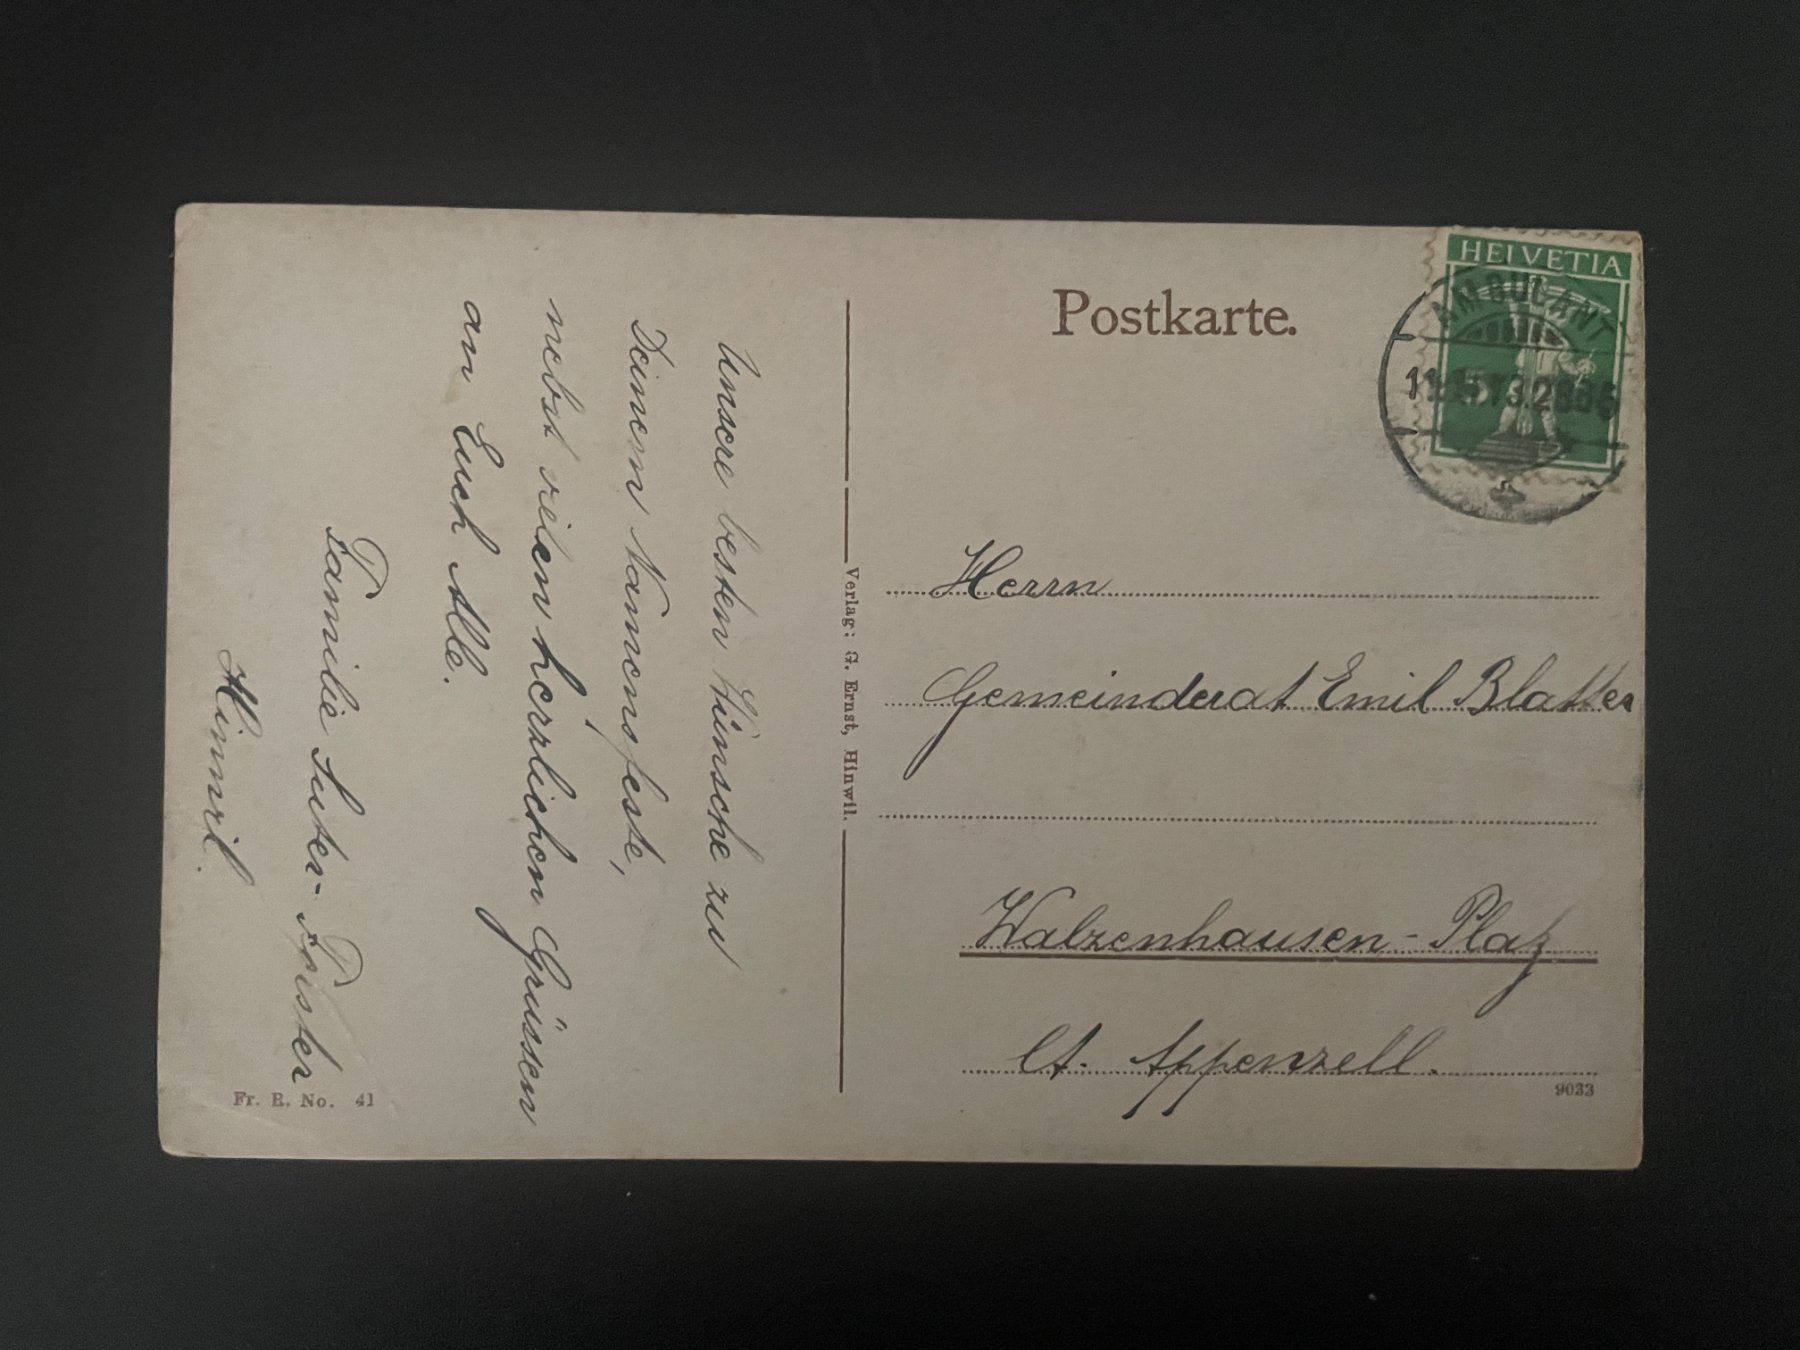 Postkarte.
HELVETIA
AMBULANT
Herrn
Gemeinderat Emil Blatter
Walzenhausen-Platz
Ct. Appenzell.
9033
Verlag: G. Ernst, Hinwil.
Unsere besten Wünsche zu
Deinem Namensfeste,
nebst vielen herzlichen Grüssen
an Euch Alle.
Familie Suter-Forster
Hinwil.
Fr. E. No. 41